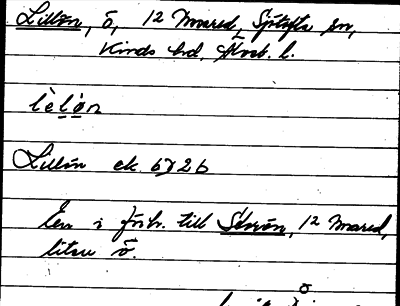 Lillön, ö, 12 Mared, Sjötofta sn,
Kinds hd, Älvsb. l.
lèlȯn
Lillön ek. 6J2b
En i förh. till Storön, 12 Mared,
liten ö.